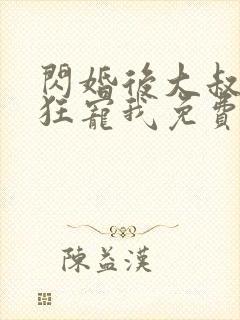 閃婚後大叔
狂寵我免費
陳益漢